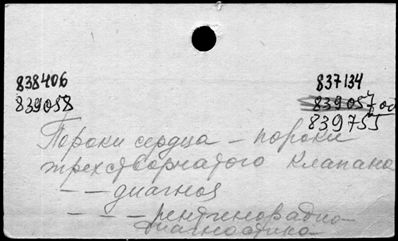 838406
839058
837134
839057 од
839755
Пороки сердца – пороки
трехстворчатого клапана
– – диагноз
– – – рентгенорадио-
диагностика